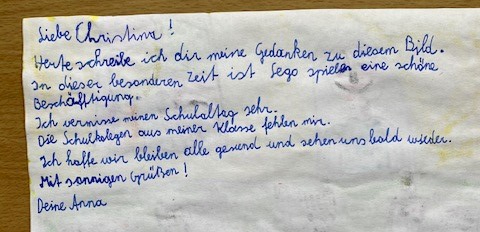 Liebe Christina!
Heute schreibe ich dir meine Gedanken zu diesem Bild.
In dieser besonderen Zeit ist Lego spielen eine schöne
Beschäftigung.
Ich vermisse meinen Schulalltag sehr.
Die Schulkolegen aus meiner Klasse fehlen mir.
Ich hoffe wir bleiben alle gesund und sehen uns bald wieder.
Mit sonnigen Grüßen!
Deine Anna